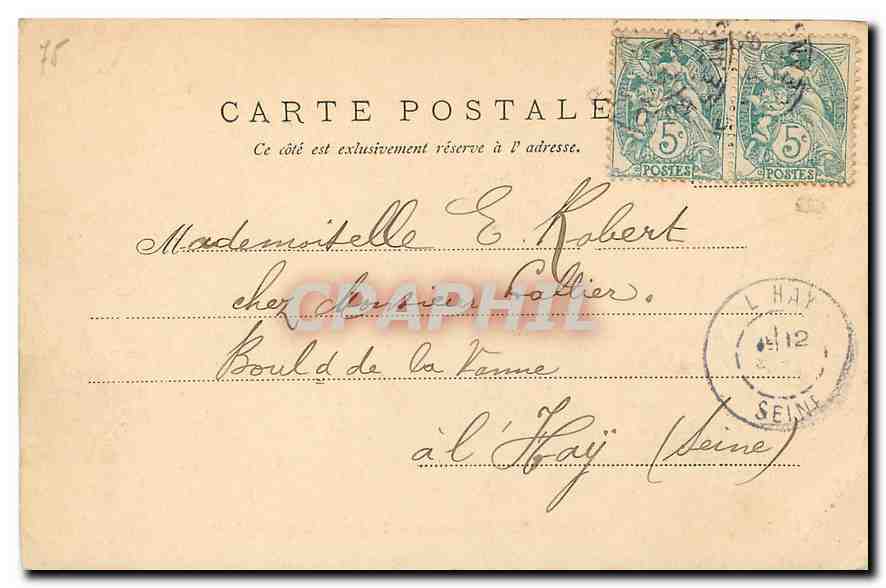 75
CARTE POSTALE
Ce côté est exlusivement réserve à l'adresse.
5c
POSTES
5c
POSTES
Mademoiselle E. Robert
chez Monsieur Galtier.
CPAPHIL
Bould de la Vanne
à l'Haÿ (Seine)
L HAY
12
SEINE